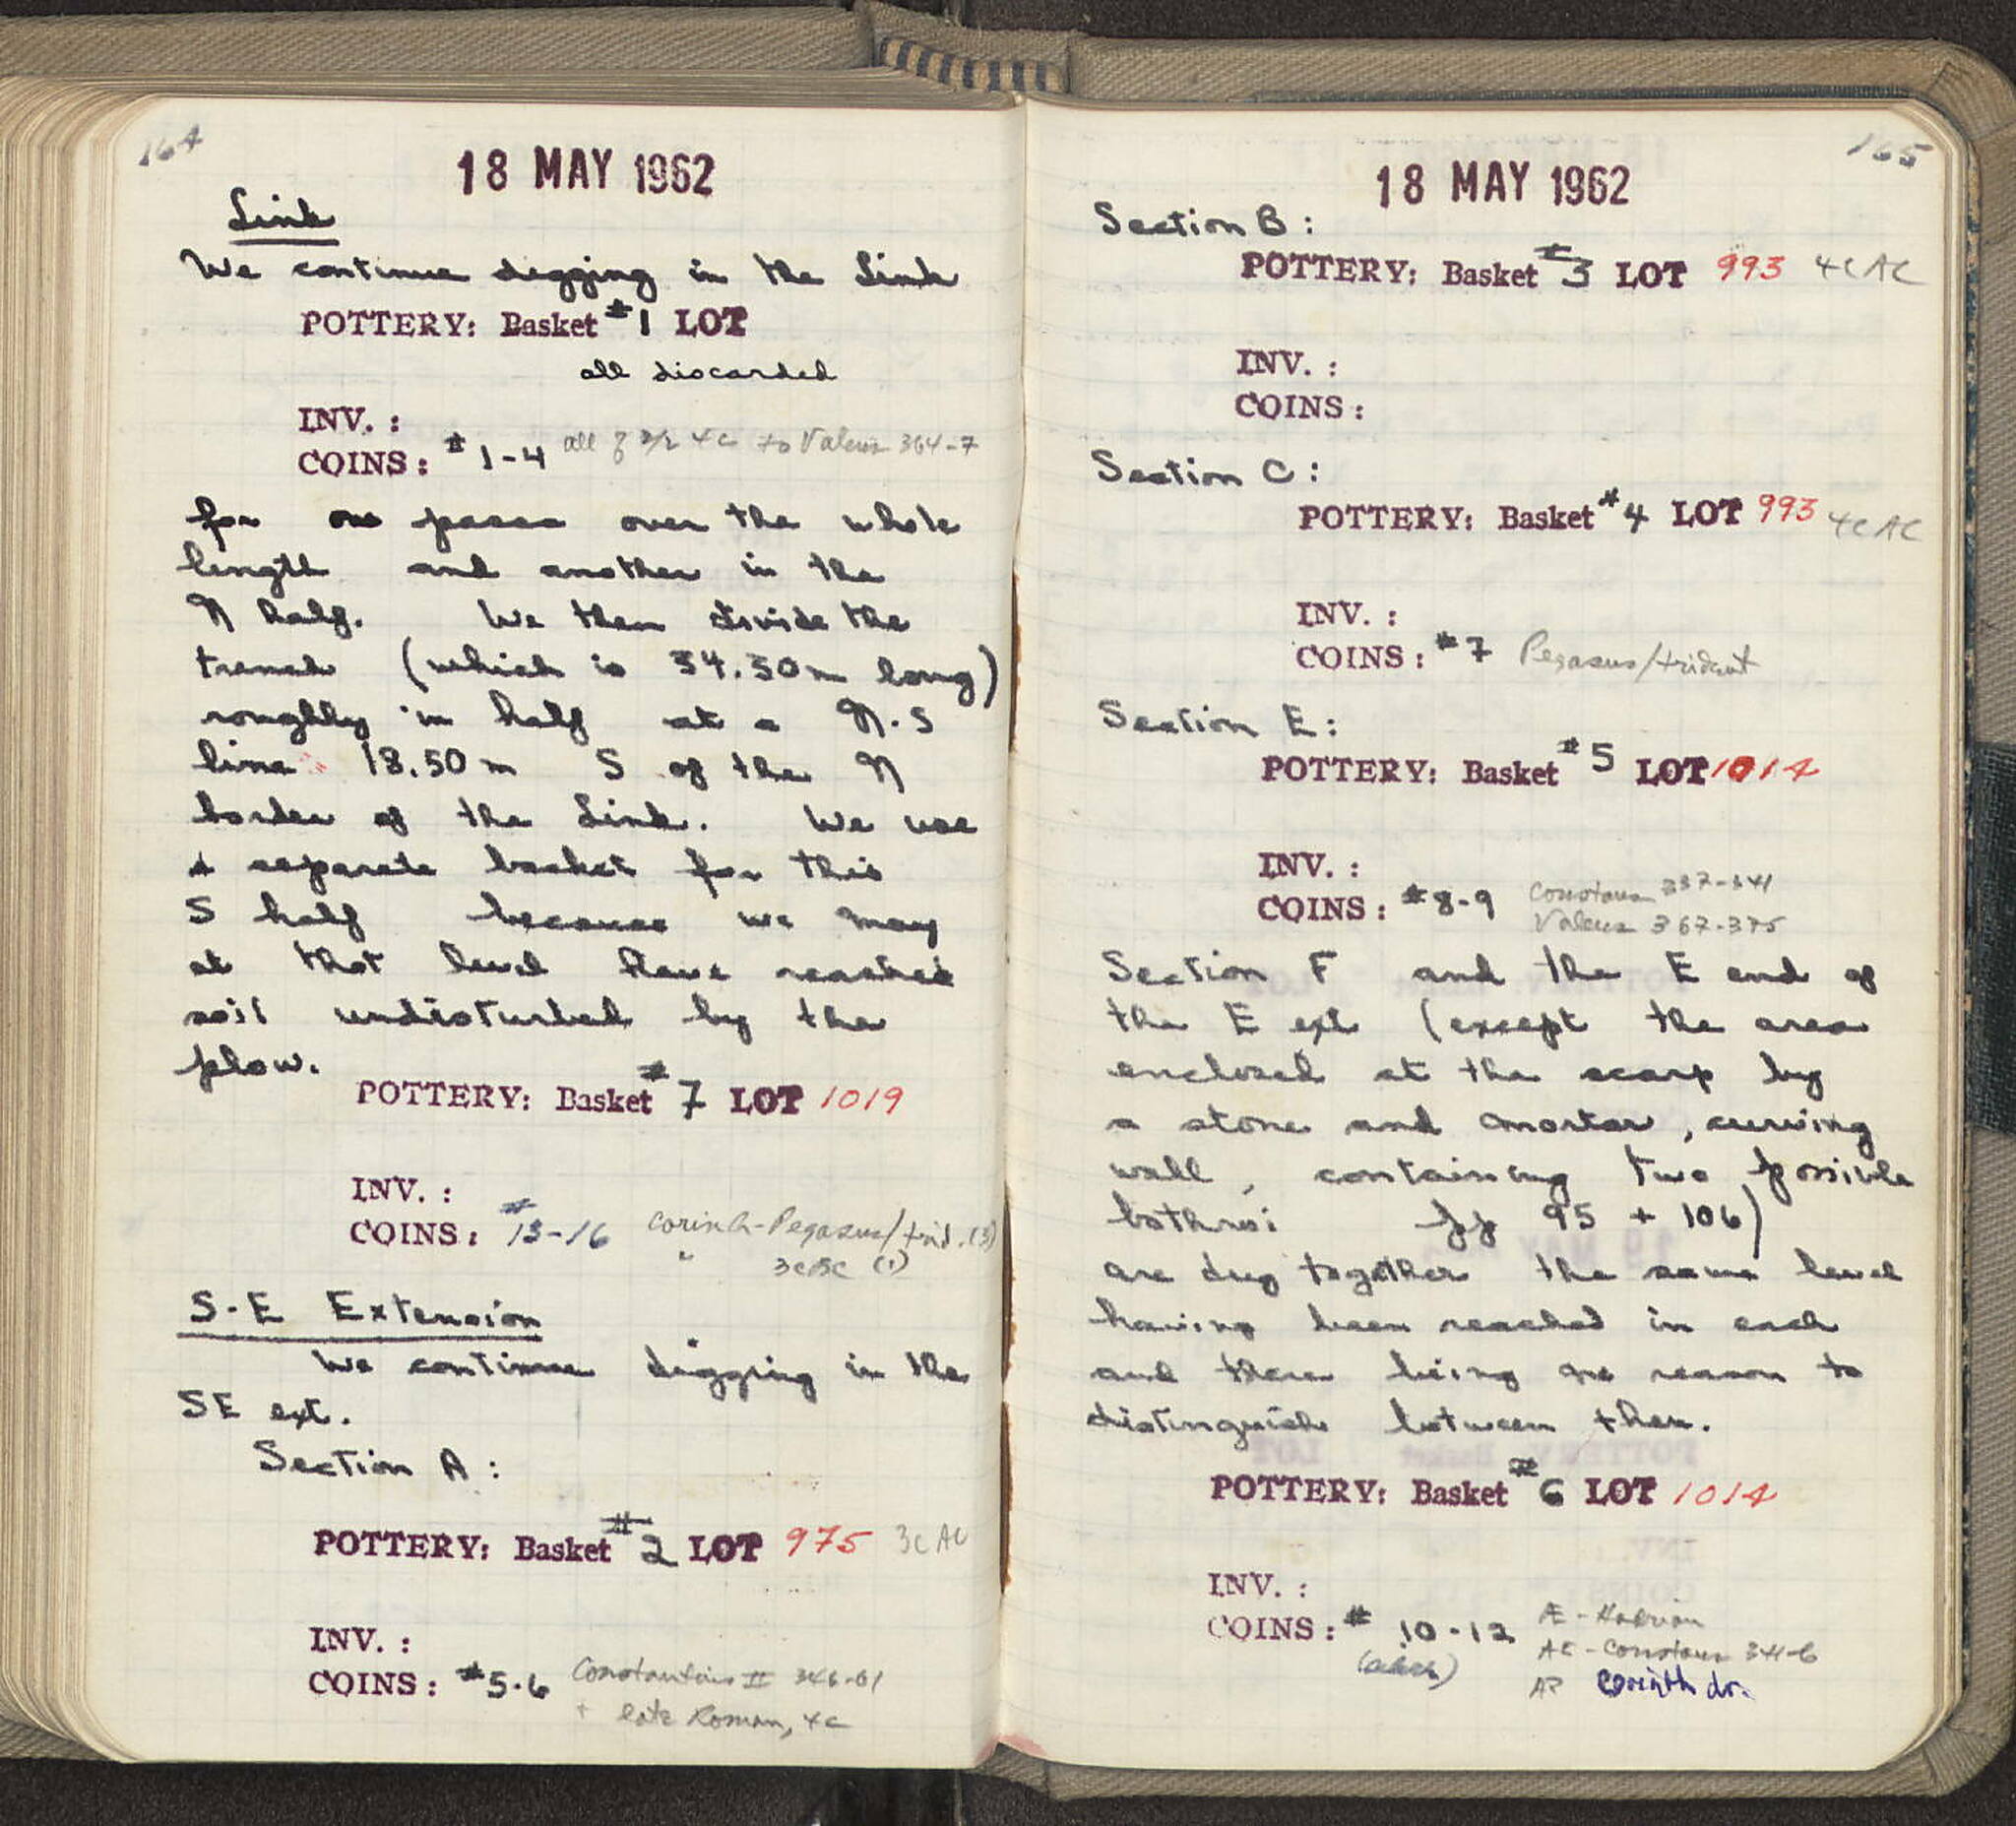 164
18 MAY 1962
Link
We continue digging in the Link
POTTERY: Basket #1 LOT
all discarded
INV. :
COINS: #1-4 all of 2/2 4c to Valens 364-7
for one passa over the whole
length and another in the
N half. We then divide the
trench (which is 34.30m long)
roughly in half at a N.S
line 18.50m S of the N
border of the Link. We use
a separate basket for this
S half because we may
at that level have reached
soil undisturbed by the
plow.
POTTERY: Basket #7 LOT 1019
INV. :
COINS: #13-16 Corinth-Pegasus/trid. (3)
" 3cBC (1)
S-E Extension
We continue digging in the
SE ext.
Section A:
POTTERY: Basket #2 LOT 975 3c AC
INV. :
COINS: #5-6 Constantius II 346-61
+ late Roman, 4c
165
18 MAY 1962
Section B:
POTTERY: Basket #3 LOT 993 4c AC
INV. :
COINS:
Section C:
POTTERY: Basket #4 LOT 993 4c AC
INV. :
COINS: #7 Pegasus/trident
Section E:
POTTERY: Basket #5 LOT 1014
INV. :
COINS: #8-9 Constans 337-341
Valens 367-375
Section F and the E end of
the E ext (except the area
enclosed at the scarp by
a stone and mortar, curving
wall, containing two possible
bothroi pp 95 + 106)
are dug together the same level
having been reached in each
and there being no reason to
distinguish between them.
POTTERY: Basket #6 LOT 1014
INV. :
COINS: # 10-12 Æ - Hadrian
AE - Constans 341-6
AR Corinth dr.